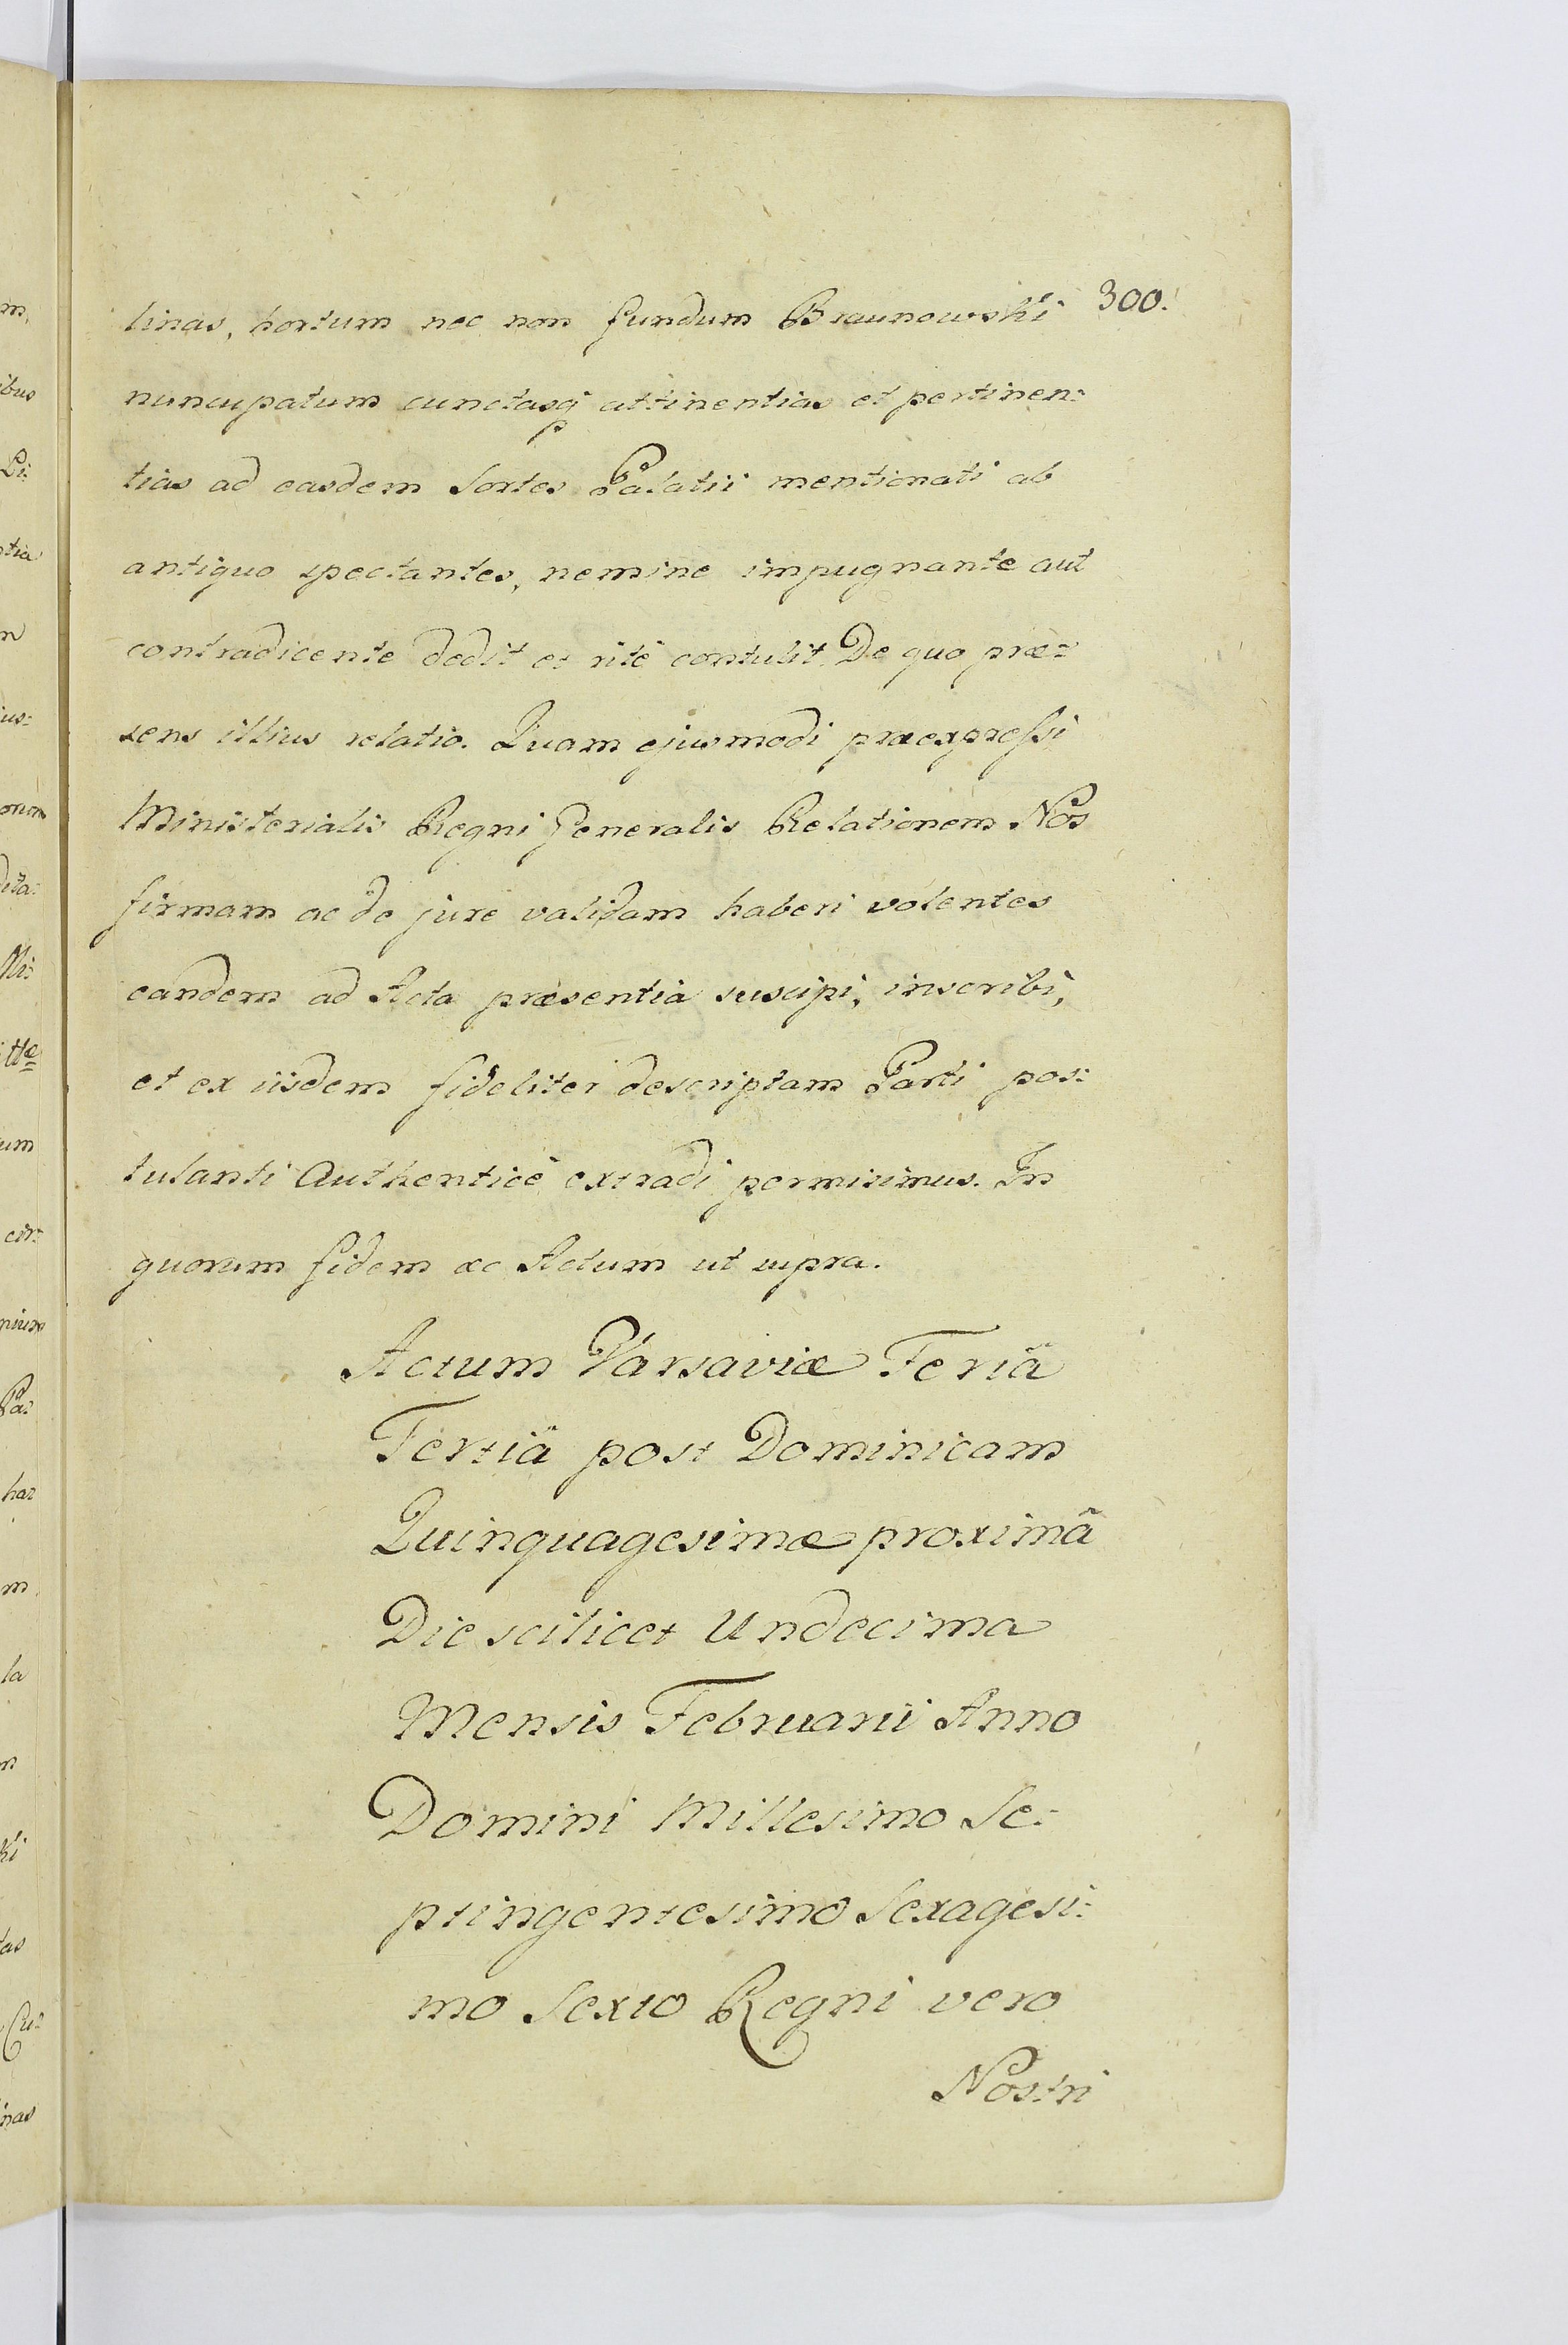 300.
linas, hortum nec non fundum Braunowski
nuncupatum cunctasq́ attinentias et pertinen:
tias ad easdem Sortes Palatii mentionati ab
antiquo spectantes, nemine impugnante aut
contradicente dedit et ritè contulit. De quo præ:
sens illius relatio. Quam ejusmodi præexpressi
Ministerialis Regni Generalis Relationem Nos
firmam ac de jure validam haberi volentes
eandem ad Acta præsentia suscipi, inscribi,
et ex iisdem fideliter descriptam Parti pos:
tulanti Authenticè extradi permisimus. In
quorum fidem &c Actum ut supra.
Actum Varsaviæ Feriâ
Tertiâ post Dominicam
Quinquagesimæ proximâ
Die scilicet Undecima
Mensis Februarii Anno
Domini Millesimo Se:
ptingentesimo Sexagesi:
mo Sexto Regni vero
Nostri